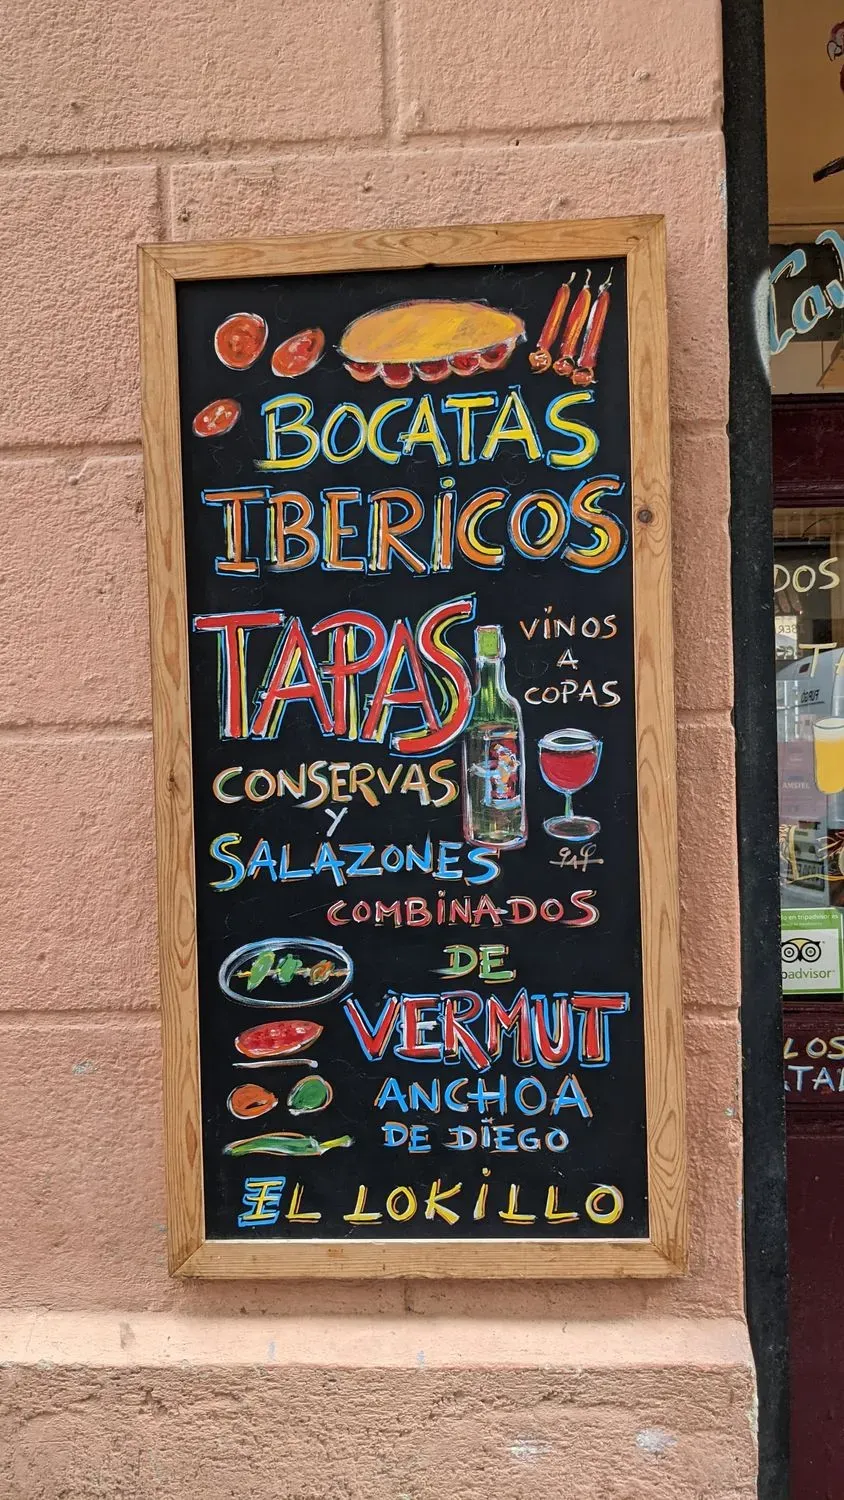 BOCATAS
IBERICOS
TAPAS
VINOS
A
COPAS
CONSERVAS
Y
SALAZONES
COMBINADOS
DE
VERMUT
ANCHOA
DE DIEGO
EL LOKILLO
DOS
AMSTEL
en tripadvisor.es
padvisor
LOS